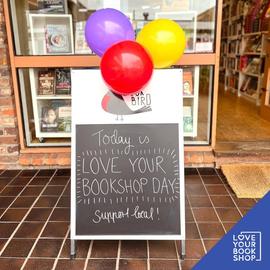 BIRD
Today is
LOVE YOUR
BOOKSHOP DAY
Support local!
LOVE
YOUR
BOOK
SHOP